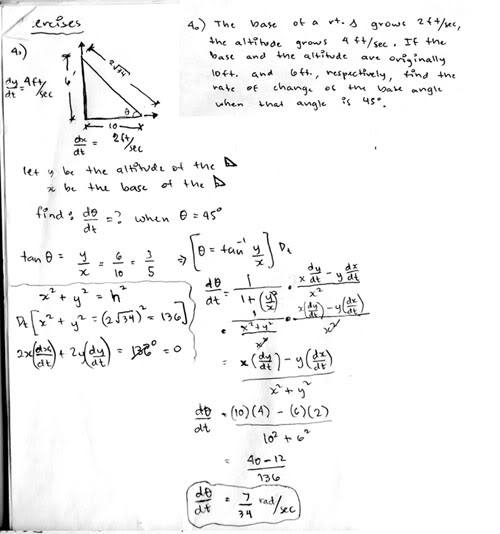 ercises
4.) The base of a rt. Δ grows 2ft/sec,
the altitude grows 4 ft/sec. If the
base and the altitude are originally
10ft. and 6ft., respectively, find the
rate of change of the base angle
when that angle is 45°.
4.)
dy/dt = 4ft/sec
6'
2√34
θ
10
dx/dt = 2ft/sec
let y be the altitude of the ⊿
x be the base of the ⊿
find: dθ/dt = ? when θ = 45°
tan θ = y/x = 6/10 = 3/5 ⇒ [θ = tan⁻¹ y/x] Dt
x² + y² = h²
Dt [x² + y² = (2√34)² = 136]
2x(dx/dt) + 2y(dy/dt) = 136⁰ = 0
dθ/dt = 1/(1 + (y/x)²) · (x dy/dt − y dx/dt)/x²
= 1/((x² + y²)/x²) · (x(dy/dt) − y(dx/dt))/x²
= (x(dy/dt) − y(dx/dt))/(x² + y²)
dθ/dt = ((10)(4) − (6)(2))/(10² + 6²)
= (40 − 12)/136
dθ/dt = 7/34 rad/sec